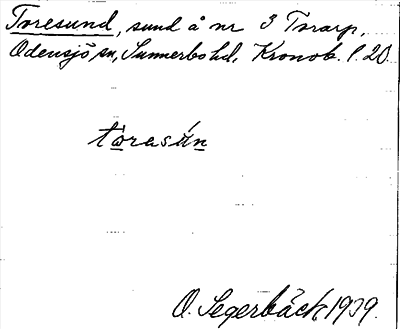 Toresund, sund å nr 3 Torarp,
Odensjö sn, Sunnerbo hd, Kronob. l. 20.
tòrasún
O. Segerbäck 1939.